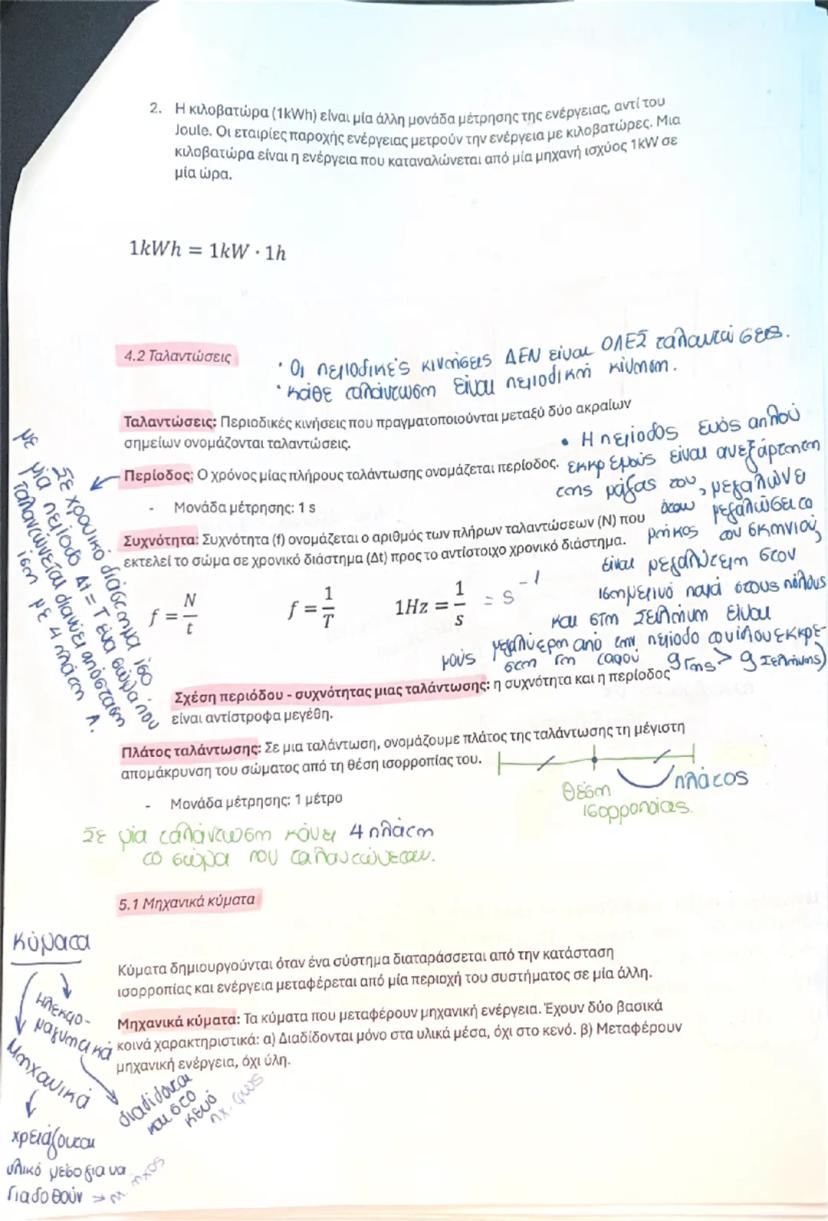 2. Η κιλοβατώρα (1kWh) είναι μία άλλη μονάδα μέτρησης της ενέργειας, αντί του
Joule. Οι εταιρίες παροχής ενέργειας μετρούν την ενέργεια με κιλοβατώρες. Μια
κιλοβατώρα είναι η ενέργεια που καταναλώνεται από μία μηχανή ισχύος 1kW σε
μία ώρα.
1kWh = 1kW · 1h
4.2 Ταλαντώσεις
• Οι περιοδικές κινήσεις ΔΕΝ είναι ΟΛΕΣ ταλαντώσεις.
• κάθε ταλάντωση είναι περιοδική κίνηση.
Ταλαντώσεις: Περιοδικές κινήσεις που πραγματοποιούνται μεταξύ δύο ακραίων
σημείων ονομάζονται ταλαντώσεις.
Περίοδος: Ο χρόνος μίας πλήρους ταλάντωσης ονομάζεται περίοδος.
- Μονάδα μέτρησης: 1 s
Σε χρονικό διάστημα ίσο
με μία περίοδο Δt = T ένα σώμα που
ταλαντώνεται διανύει απόσταση
ίση με 4 πλάτη Α.
• Η περίοδος ενός απλού
εκκρεμούς είναι ανεξάρτητη
της μάζας του, μεγαλώνει
όταν μεγαλώσει το
μήκος του σκηνιού,
είναι μεγαλύτερη στον
ισημερινό παρά στους πόλους
και στη Σελήνη είναι
μεγαλύτερη από την περίοδο του ίδιου εκκρε-
μούς στη Γη (αφού g Γης > g Σελήνης)
Συχνότητα: Συχνότητα (f) ονομάζεται ο αριθμός των πλήρων ταλαντώσεων (N) που
εκτελεί το σώμα σε χρονικό διάστημα (Δt) προς το αντίστοιχο χρονικό διάστημα.
f = N/t f = 1/T 1Hz = 1/s = s⁻¹
Σχέση περιόδου - συχνότητας μιας ταλάντωσης: η συχνότητα και η περίοδος
είναι αντίστροφα μεγέθη.
Πλάτος ταλάντωσης: Σε μια ταλάντωση, ονομάζουμε πλάτος της ταλάντωσης τη μέγιστη
απομάκρυνση του σώματος από τη θέση ισορροπίας του.
- Μονάδα μέτρησης: 1 μέτρο
πλάτος
θέση
ισορροπίας.
Σε μία ταλάντωση κάνει 4 πλάτη
το σώμα που ταλαντώνεται.
5.1 Μηχανικά κύματα
Κύματα δημιουργούνται όταν ένα σύστημα διαταράσσεται από την κατάσταση
ισορροπίας και ενέργεια μεταφέρεται από μία περιοχή του συστήματος σε μία άλλη.
Μηχανικά κύματα: Τα κύματα που μεταφέρουν μηχανική ενέργεια. Έχουν δύο βασικά
κοινά χαρακτηριστικά: α) Διαδίδονται μόνο στα υλικά μέσα, όχι στο κενό. β) Μεταφέρουν
μηχανική ενέργεια, όχι ύλη.
Κύματα
Ηλεκτρο-
μαγνητικά
Μηχανικά
διαδίδονται
και στο
κενό
πχ. φως
χρειάζονται
υλικό μέσο για να
διαδοθούν → π.χ. ήχος